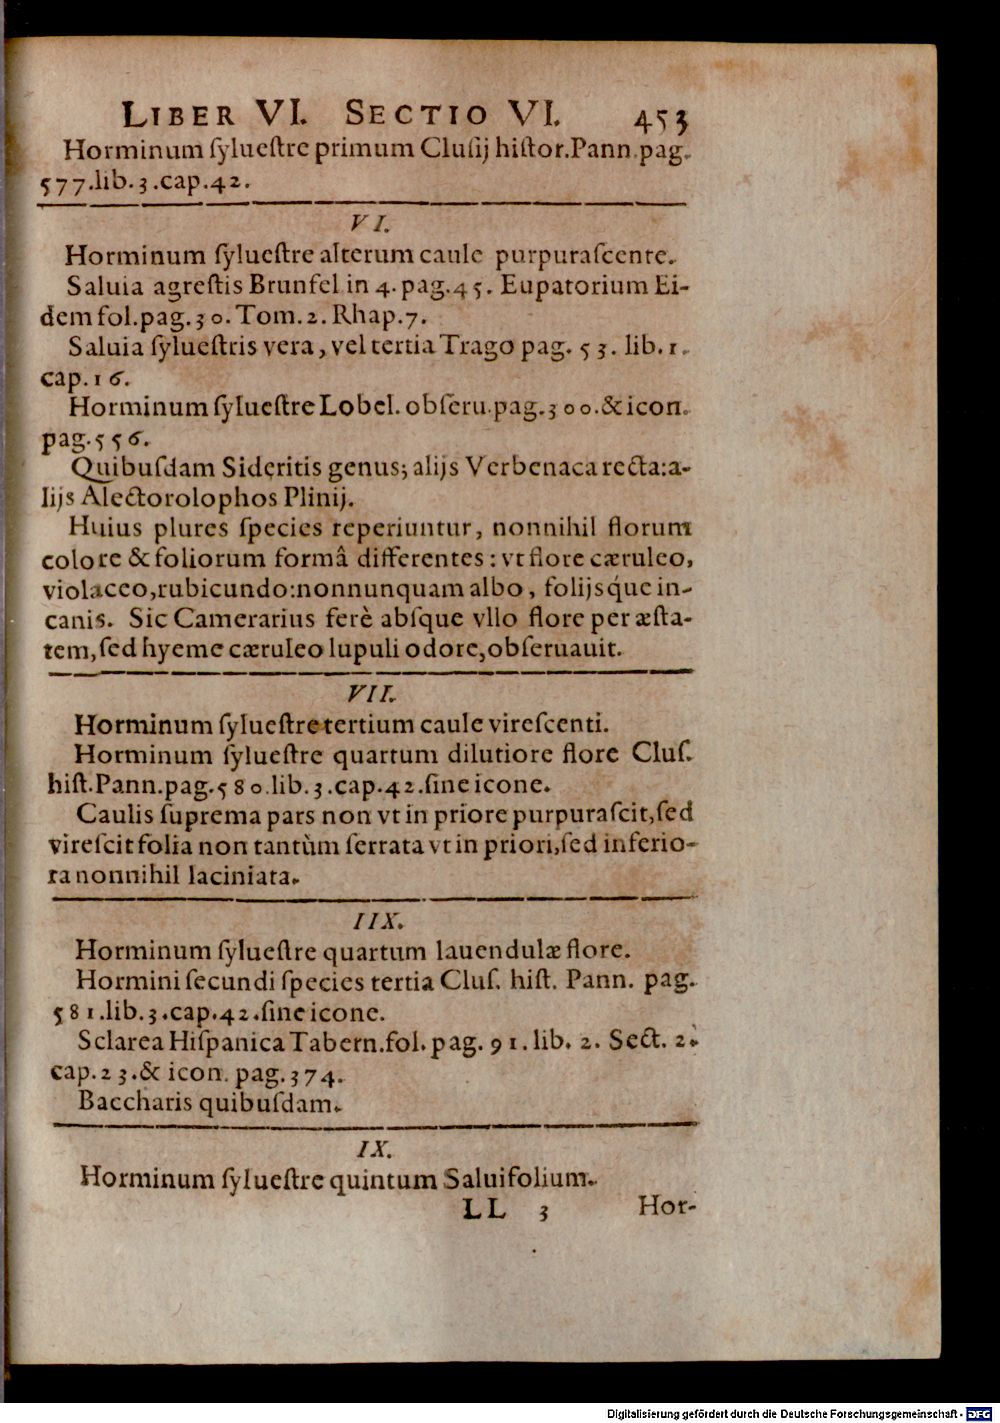 LIBER VI. SECTIO VI. 453
Horminum ſylueſtre primum Cluſij hiſtor.Pann.pag.
577.lib.3.cap.42.
VI.
Horminum ſylueſtre alterum caule purpuraſcente.
Saluia agreſtis Brunfel in 4. pag.45. Eupatorium Ei-
dem fol.pag.30. Tom.2. Rhap.7.
Saluia ſylueſtris vera, vel tertia Trago pag. 53. lib.1.
cap.16.
Horminum ſylueſtre Lobel. obſeru.pag.300.& icon.
pag.556.
Quibuſdam Sideritis genus; alijs Verbenaca recta:a-
lijs Alectorolophos Plinij.
Huius plures ſpecies reperiuntur, nonnihil florum
colore & foliorum formâ differentes : vt flore cæruleo,
violaceo,rubicundo:nonnunquam albo, folijsq́ue in-
canis. Sic Camerarius ferè abſque vllo flore per æſta-
tem,ſed hyeme cæruleo lupuli odore,obſeruauit.
VII.
Horminum ſylueſtre tertium caule vireſcenti.
Horminum ſylueſtre quartum dilutiore flore Cluſ.
hiſt.Pann.pag.580.lib.3.cap.42.ſine icone.
Caulis ſuprema pars non vt in priore purpuraſcit,ſed
vireſcit folia non tantùm ſerrata vt in priori,ſed inferio-
ra nonnihil laciniata.
IIX.
Horminum ſylueſtre quartum lauendulæ flore.
Hormini ſecundi ſpecies tertia Cluſ. hiſt. Pann. pag.
581.lib.3.cap.42.ſine icone.
Sclarea Hiſpanica Tabern.fol. pag. 91. lib. 2. Sect. 2.
cap.23.& icon. pag.374.
Baccharis quibuſdam.
IX.
Horminum ſylueſtre quintum Saluifolium.
LL 3 Hor-
Digitalisierung gefördert durch die Deutsche Forschungsgemeinschaft - DFG